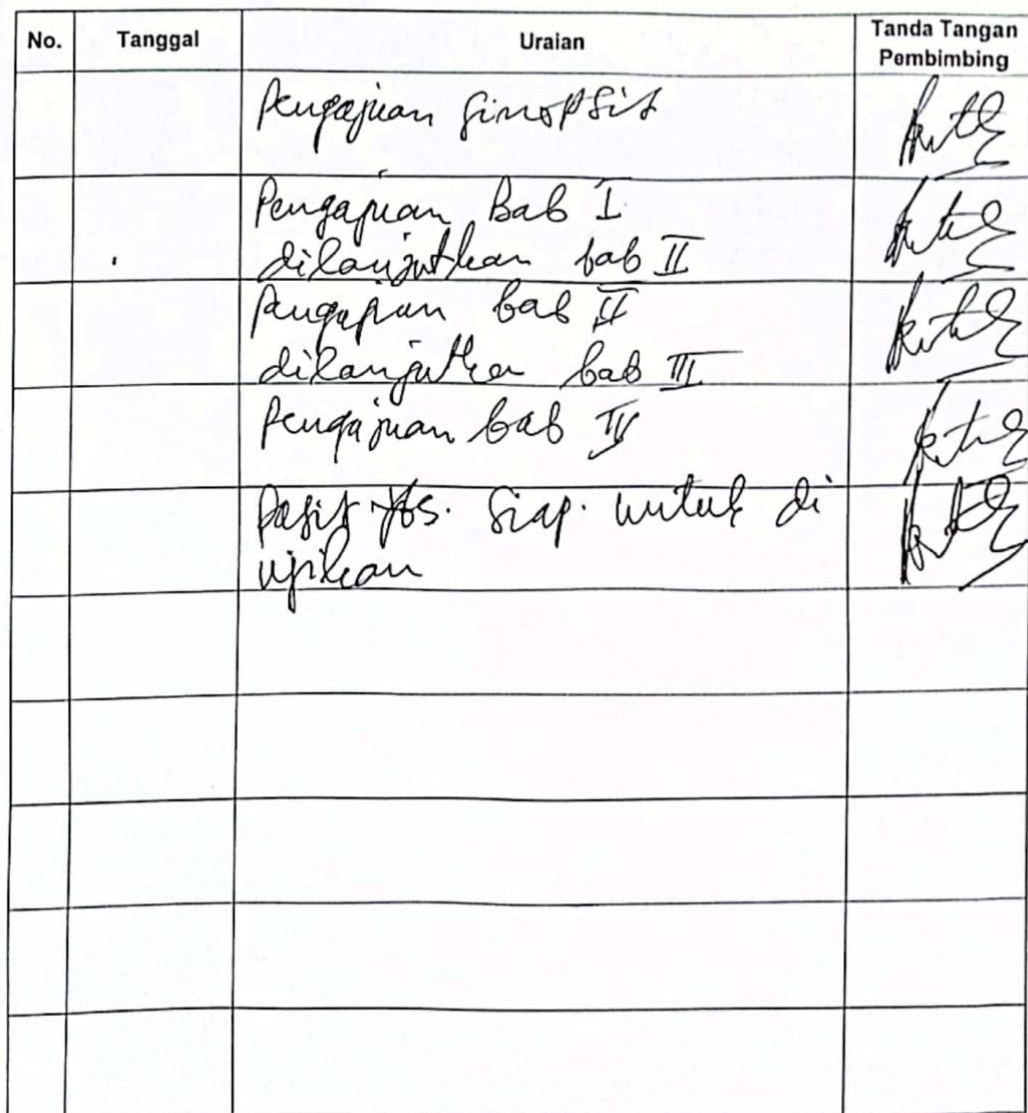 No. Tanggal Uraian Tanda Tangan Pembimbing
Pengajuan Sinopsis
Pengajuan Bab I
dilanjutkan bab II
Pengajuan bab II
dilanjutkan bab III
Pengajuan bab IV
ybs. Siap. untuk di
ujikan